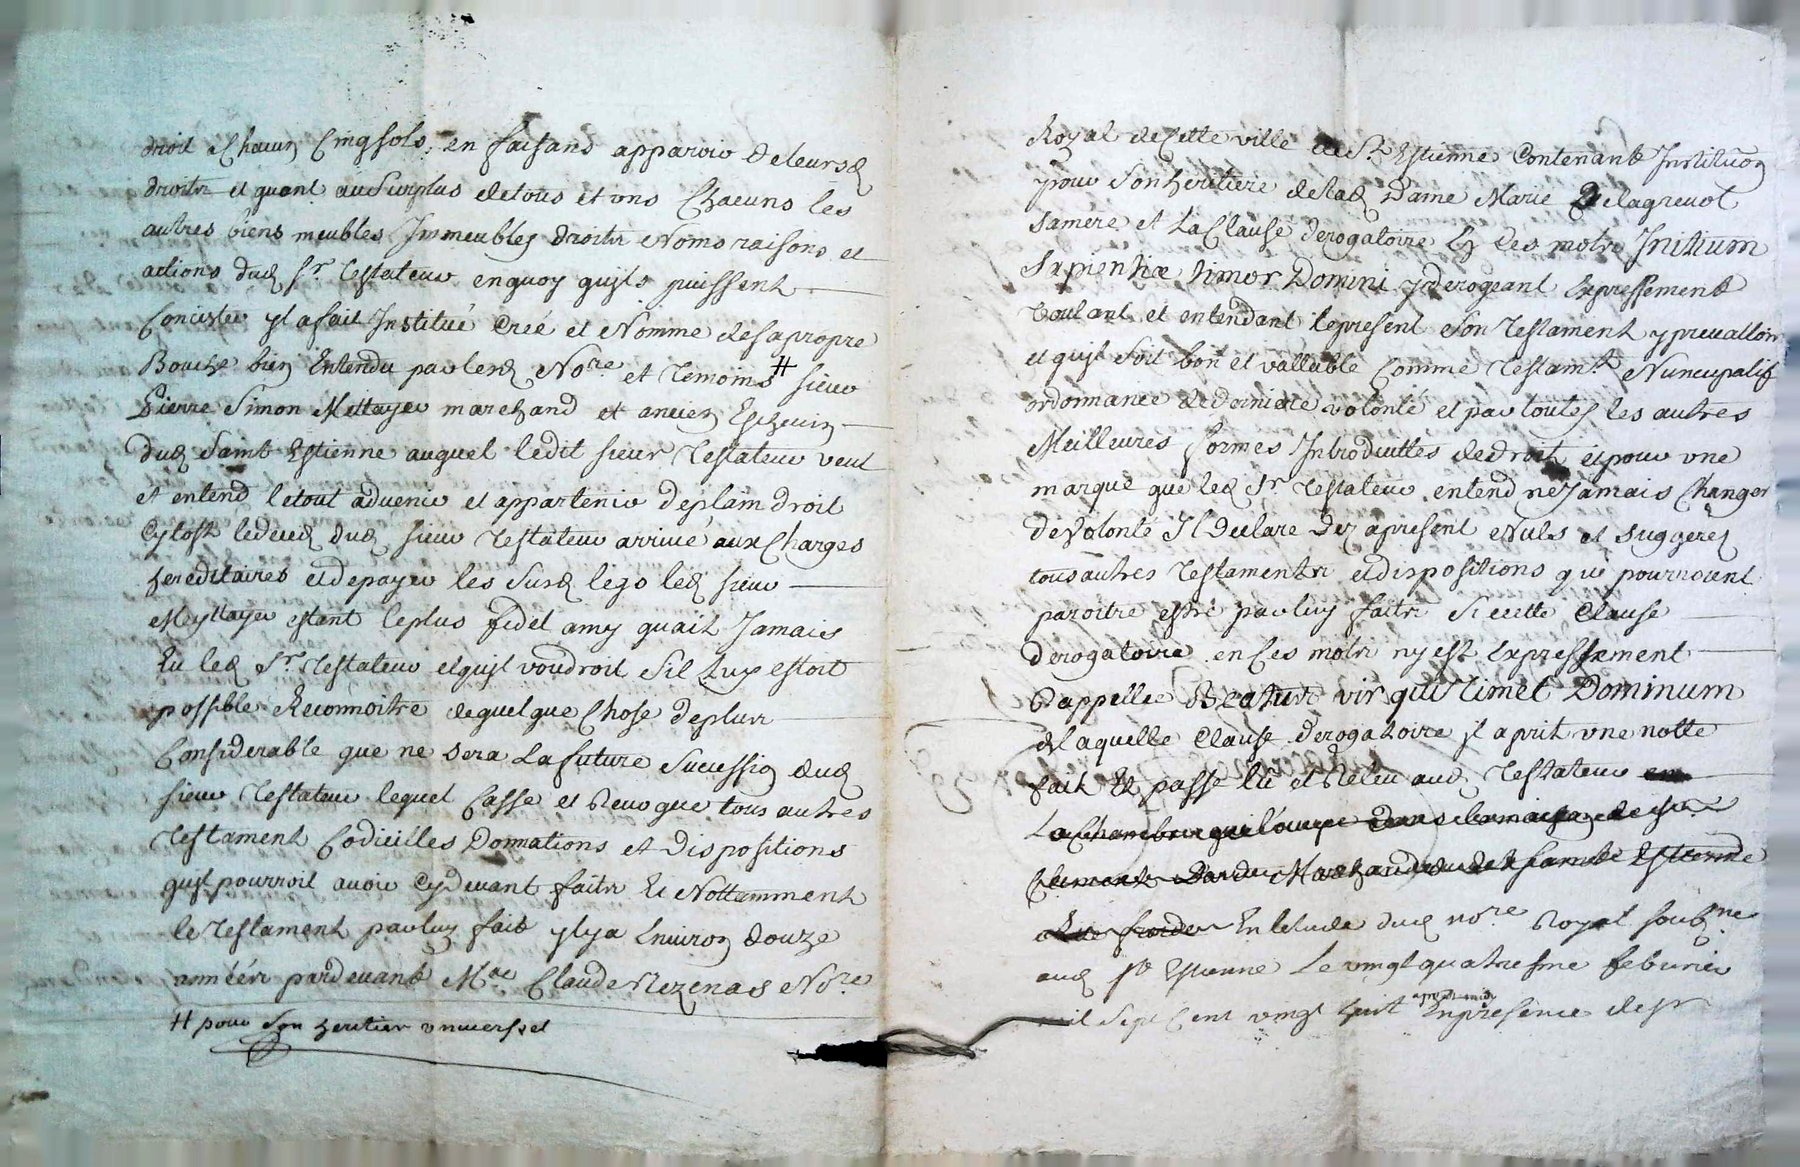 droit a Chacun Cinq sols, en faisans apparoir de leursd
droits et quant au surplus de tous et uns Chacuns les
autres biens meubles Immeubles droits Noms raisons et
actions dud Sr Testateur en quoy quils puissent
Concister yl a fait Institué Creé et Nommé de sa propre
Bouche bien Entendu par led Nore et Temoins # sieur
Pierre Simon Mettayer marchand et ancien Eschevin
dud Saint Estienne auquel ledit sieur Testateur veut
et entend le tout advenir et appartenir de plain droit
Cytost le deced dud sieur Testateur arrivé aux Charges
hereditaires et de payer les susd legs led sieur
Meyttayer estant le plus fidel amy quait Jamais
Eu led Sr Testateur et quil voudroit sil luy estoit
possible Reconnoitre de quelque Chose de plus
Considerable que ne sera La future Succession dud
sieur Testateur lequel Casse et Revoque tous autres
Testament Codicilles Donnations et Dispositions
quil pourroit avoir Cy devant faits Et Nottamment
le Testament par luy fait yl y a Environ douze
années pardevant Me Claude Rezenas Nore
# pour son heritier universel
Royal de Cette ville de St Estienne Contenant Institution
pour son heritiere de lad Dame Marie Delagrevol
sa mere et La Clause derogatoire En Ces mots Initium
Sapientiæ timor Domini y derogeant Expressement
Voulant et entendant le present son Testament y prevalloir
et quil soit bon et vallable Comme Testamt Nuncupatif
ordonnance de derniere volonté et par toutes les autres
Meilleures formes Introduittes de droit et pour une
marque que led Sr Testateur entend ne Jamais Changer
de volonté Il Declare Dez apresent Nuls et suggerez
tous autres Testaments et dispositions qui pourroient
paroitre estre par luy faits si cette Clause
derogatoire en Ces mots ny est Expressement
Rappellee Beatus vir qui timet Dominum
de laquelle Clause derogatoire il a prit une notte
fait Et passé lu et Releu aud Testateur en
La Chambre quil occupe dans la maison de sr
Clement Marchand dudit Saint Estienne
Rue froide En letude dud nore Royal soubne
aud St Estienne Le vingt quatresme febvrier
mil Sept Cent vingt huit apres midy En presence de sr